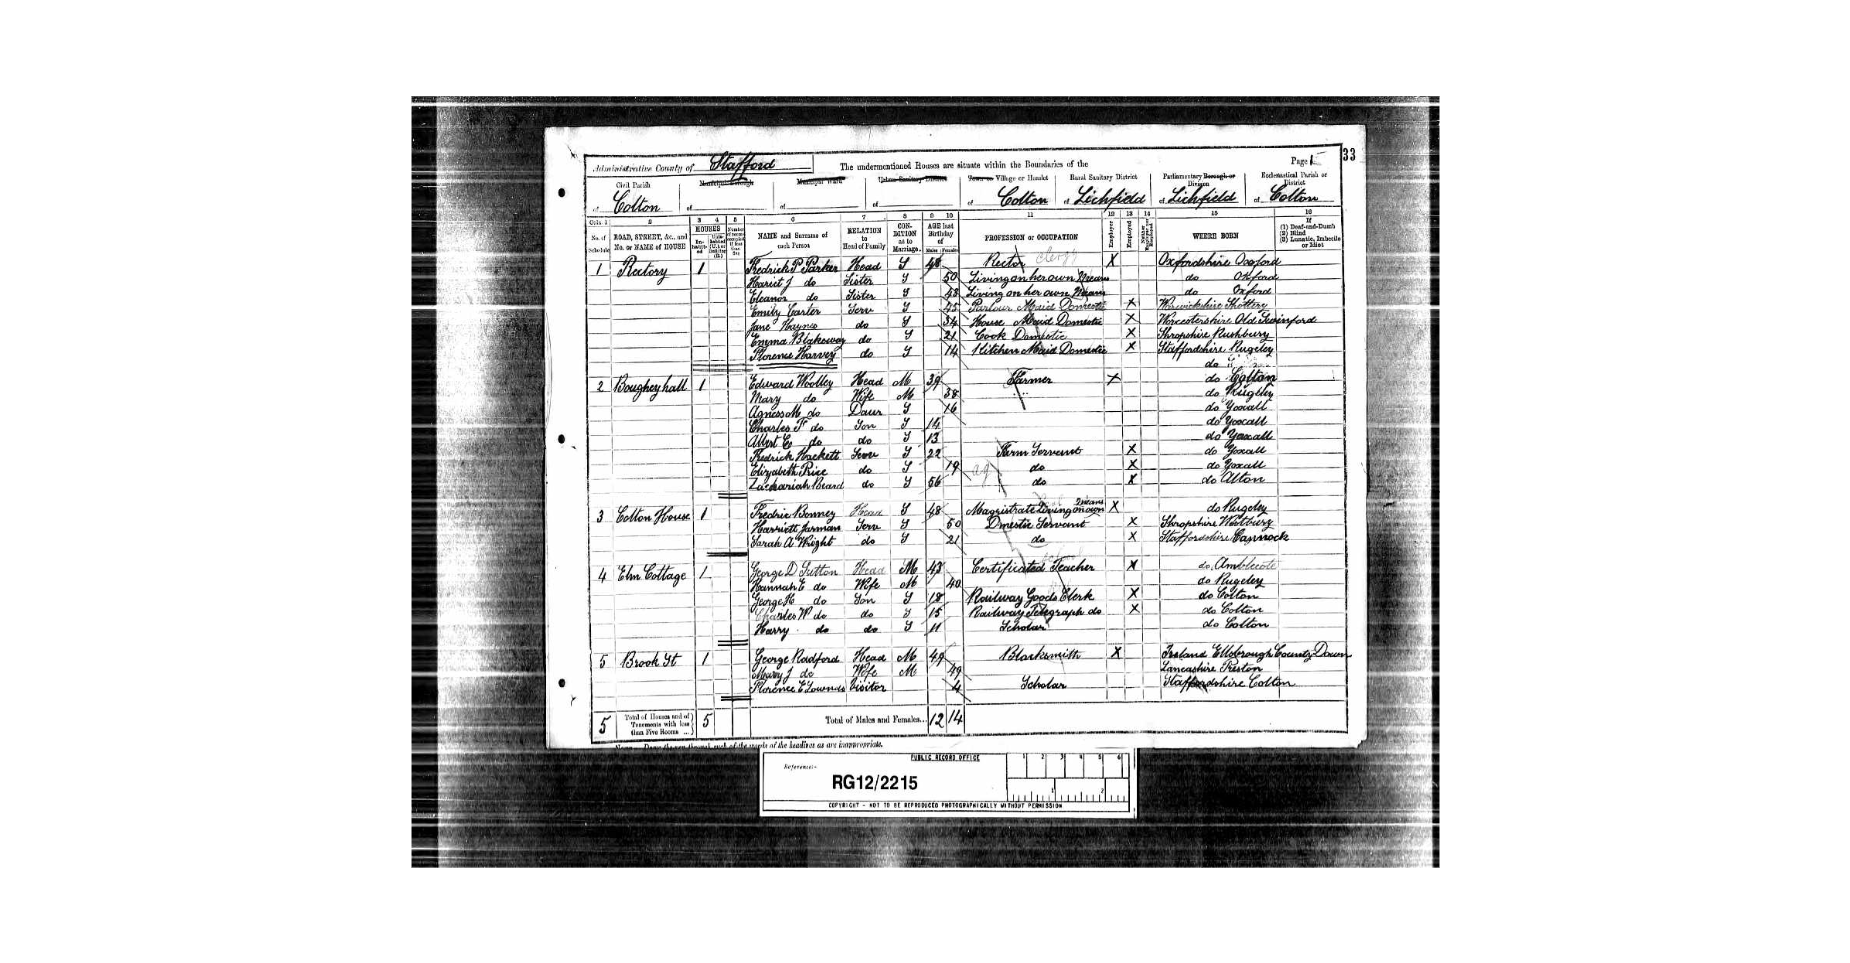 33
Administrative County of Stafford The undermentioned Houses are situate within the Boundaries of the Page 1
Civil Parish Municipal Borough Municipal Ward Urban Sanitary District Town or Village or Hamlet Rural Sanitary District Parliamentary Borough or Division Ecclesiastical Parish or District
of Colton of of of of Colton of Lichfield of Lichfield of Colton
Cols. 1 2 3 4 5 6 7 8 9 10 11 12 13 14 15 16
No. of Schedule ROAD, STREET, &c., and No. or NAME of HOUSE HOUSES NAME and Surname of each Person RELATION to Head of Family CONDITION as to Marriage AGE last Birthday of Males Females PROFESSION or OCCUPATION Employer Employed WHERE BORN If (1) Deaf-and-Dumb (2) Blind (3) Lunatic, Imbecile or Idiot
1 Rectory 1 Fredrick P Parker Head S 48 Rector X Oxfordshire Oxford
Hariet J do Sister S 50 Living on her own Means do Oxford
Eleanor do Sister S 48 Living on her own Means do Oxford
Emily Carter Serv S 45 Parlour Maid Domestic X Warwickshire Shottery
Jane Haynes do S 34 House Maid Domestic X Worcestershire Old Swinford
Emma Blakeway do S 21 Cook Domestic X Shropshire Rushbury
Florence Harvey do S 14 Kitchen Maid Domestic X Staffordshire Rugeley
do
2 Boughey hall 1 Edward Woolley Head M 39 Farmer X do Colton
Mary do Wife M 38 do Rugeley
Agness M do Daur S 16 do Yoxall
Charles F do Son S 14 do Yoxall
Albert E do do S 13 do Yoxall
Fredrick Hackett Serv S 22 Farm Servant X do Yoxall
Elizabeth Price do S 19 ag do X do Yoxall
Zachariah Beard do S 56 do X do Alton
3 Colton House 1 Fredric Bonney Head S 48 Magistrate Living on own means X do Rugeley
Harriett Jarman Serv S 50 Dmestic Servant X Shropshire Westbury
Sarah A Wright do S 21 do X Staffordshire Cannock
4 Elm Cottage 1 George D Sutton Head M 43 Certificated Teacher X do Amblecote
Hannah E do Wife M 40 do Rugeley
George H do Son S 18 Railway Goods Clerk X do Colton
Charles W do do S 15 Railway Telegraph do X do Colton
Harry do do S 11 Scholar do Colton
5 Brook St 1 George Radford Head M 49 Blacksmith X Ireland County Down
Mary J do Wife M 49 Lancashire Preston
Florence E Visitor 4 Scholar Staffordshire Colton
5 Total of Houses and of Tenements with less than Five Rooms 5 Total of Males and Females.. 12 14
of the words of the headings as are inappropriate.
PUBLIC RECORD OFFICE 1 2 3 4 5 6
Reference:-
RG12/2215
1 2
COPYRIGHT - NOT TO BE REPRODUCED PHOTOGRAPHICALLY WITHOUT PERMISSION